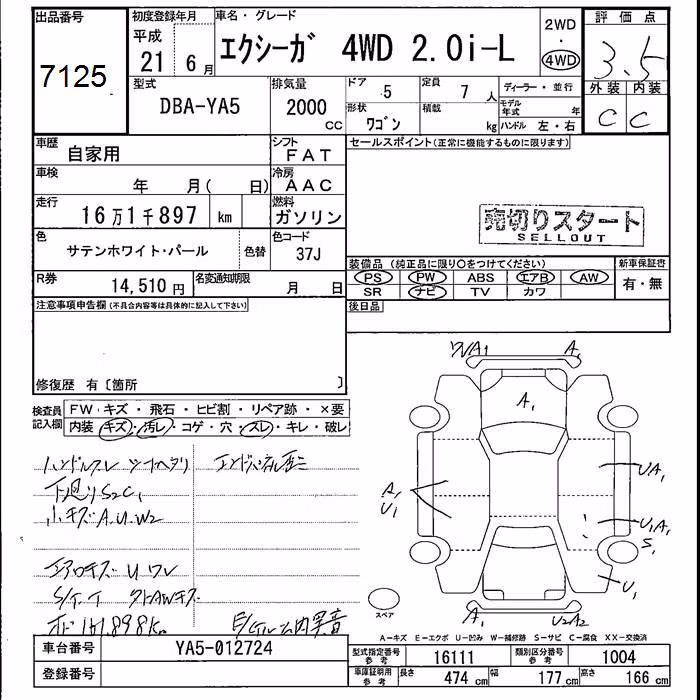 出品番号
7125
初度登録年月
平成
21 6月
車名・グレード
エクシーガ 4WD 2.0i-L
2WD
・
4WD
評価点
3.5
外装 内装
C C
型式
DBA-YA5
排気量
2000
CC
ドア
5
定員
7人
形状
ワゴン
積載
kg
ディーラー・並行
モデル年式 年
ハンドル 左・右
車歴
自家用
シフト
FAT
車検
年 月( 日)
冷房
AAC
走行
16万1千897 km
燃料
ガソリン
色
サテンホワイト・パール
色替
色コード
37J
R券
14,510円
名変通知期限
月 日
セールスポイント(正常に機能するものに限ります)
売切りスタート
SELLOUT
装備品(純正品に限り○をつけてください)
PS PW ABS エアB AW
SR ナビ TV カワ
新車保証書
有・無
後日品
注意事項申告欄(不具合内容等は具体的に記入して下さい)
修復歴 有〔箇所 〕
検査員記入欄
FW・キズ・飛石・ヒビ割・リペア跡・×要
内装・キズ・汚レ・コゲ・穴・スレ・キレ・破レ
ハンドルスレ シートヘタリ
下廻りS2C1
小キズA.U.W2
A1
A1
A1
U1
UA1
U1A1
S1
U1
A1
U2A2
スペア
A-キズ E-エクボ U-凹み W-補修跡 S-サビ C-腐食 XX-交換済
車台番号
YA5-012724
登録番号
型式指定番号
参考
16111
類別区分番号
参考
1004
車庫証明用
参考
長さ
474 cm
幅
177 cm
高さ
166 cm